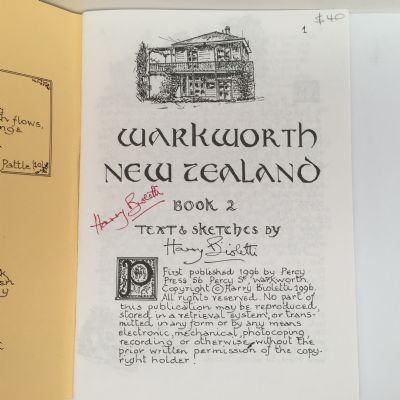 $40
1
WARKWORTH
NEW ZEALAND
BOOK 2
Harry Bioletti
TEXT & SKETCHES BY
Harry Bioletti
P
First published 1996 by Percy
Press 56 Percy St, Warkworth.
Copyright © Harry Bioletti 1996.
All rights reserved. No part of
this publication may be reproduced,
stored in a retrieval system, or trans-
mitted in any form or by any means
electronic, mechanical, photocoping
recording or otherwise, without the
prior written permission of the copy-
right holder.
flows,
Pattle